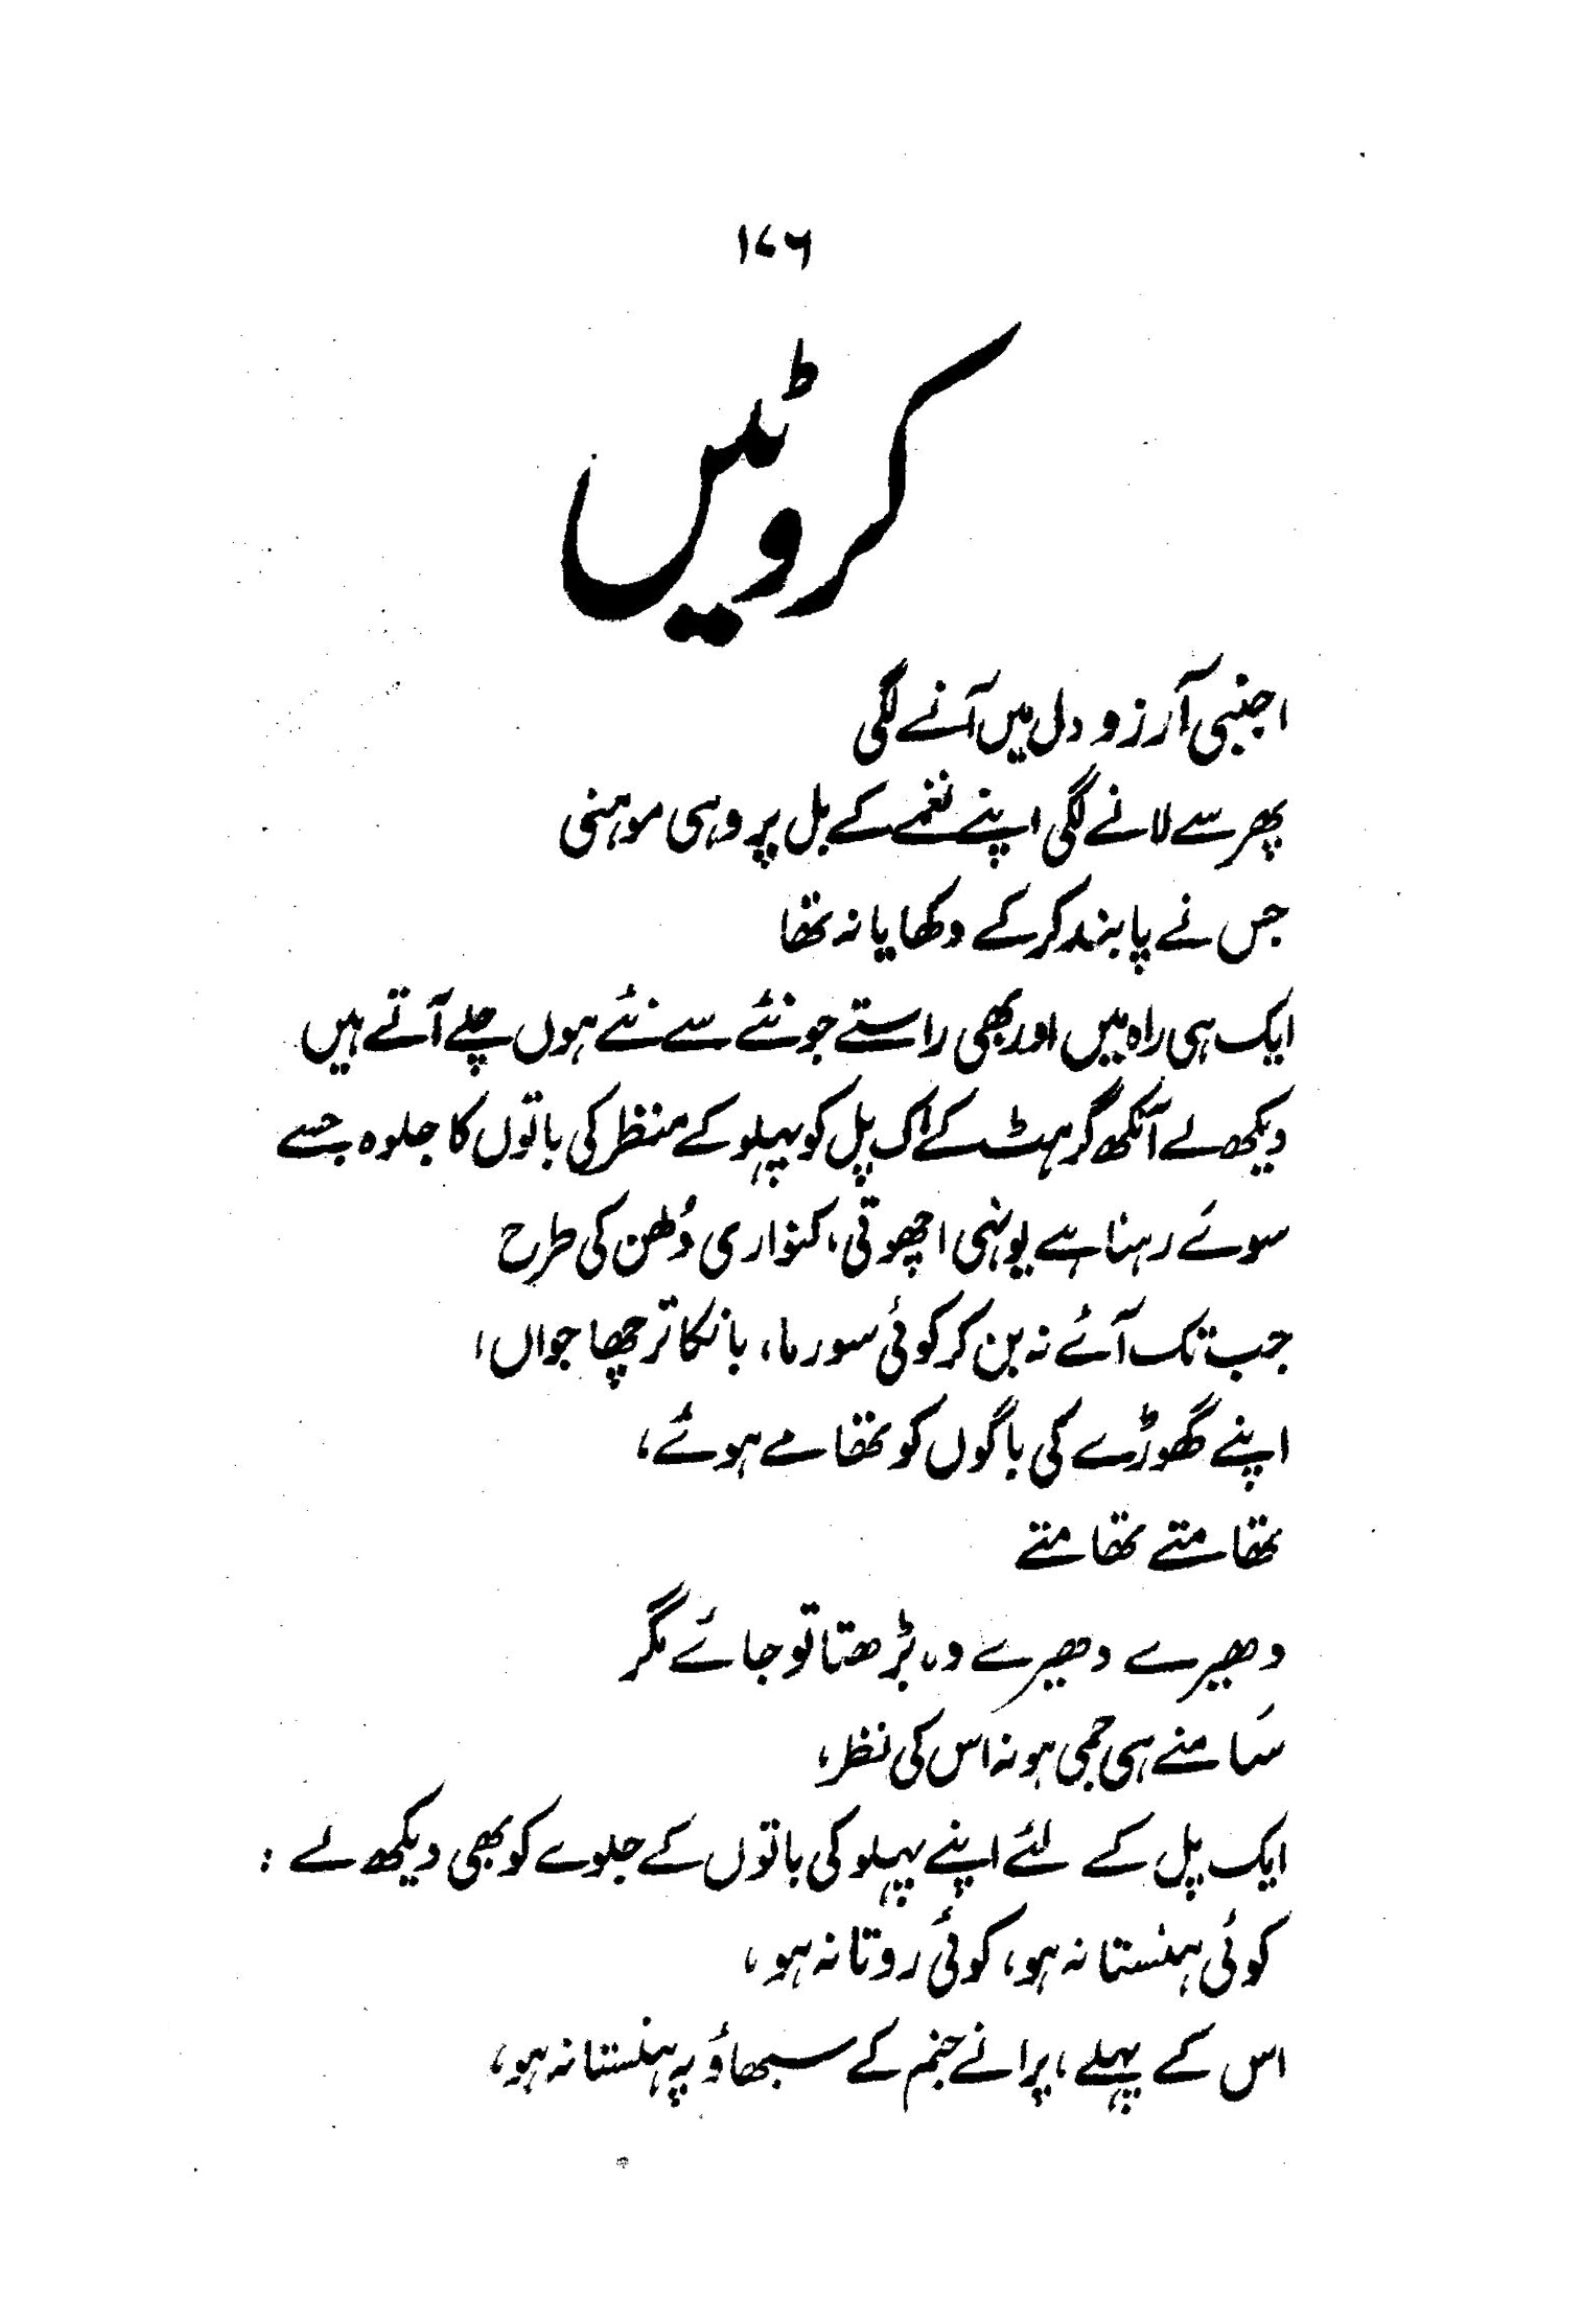 ۱۷۶
کروٹیں
اجنبی آرزو دل میں آنے لگی
پھر سے لانے لگی اپنے نغمے کے بل پر وہی موہنی
جس نے پابند کر کے دکھایا نہ تھا
ایک ہی راہ میں اور بھی راستے جو نئے سے نئے ہوں چلے آتے ہیں
دیکھ لے آنکھ گر ہٹ کے اک پل کو پہلو کے منظر کی باتوں کا جلوہ جسے
سوئے رہنا ہے یونہی اچھوتی، کنواری دُلھن کی طرح
جب تک آئے نہ بن کر کوئی سورما، بانکا ترچھا جواں،
اپنے گھوڑے کی باگوں کو تھامے ہوئے،
تھامتے تھامتے
دھیرے دھیرے وہ بڑھتا تو جائے مگر
سَامنے ہی جمی ہو نہ اس کی نظر،
ایک پل کے لئے اپنے پہلو کی باتوں کے جلوے کو بھی دیکھ لے :
کوئی ہنستا نہ ہو، کوئی روتا نہ ہو،
اس کے پہلے، پرانے جنم کے سبھاؤ پہ ہنستا نہ ہو،